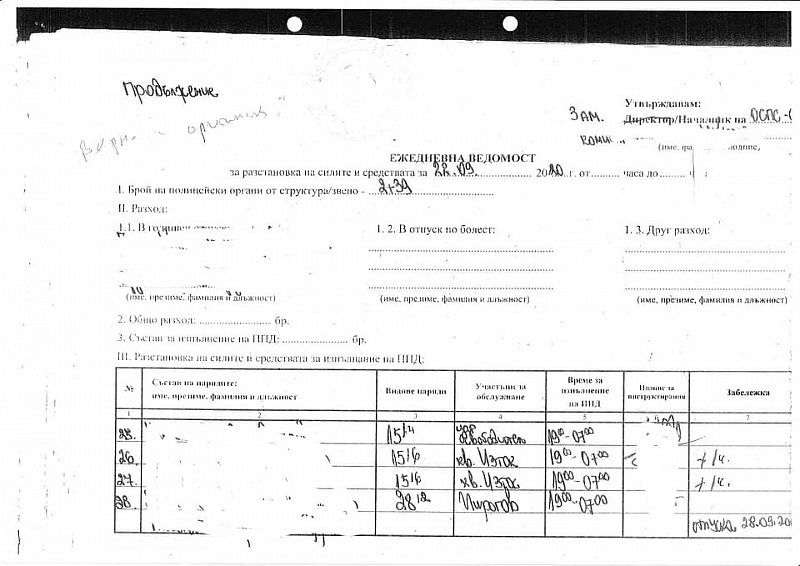 Продължение
Вярно с оригинала!
Утвърждавам:
ЗАМ. Директор/Началник на ОСПС-
КОМИ
(име, фа подпис,
ЕЖЕДНЕВНА ВЕДОМОСТ
за разстановка на силите и средствата за 28.09. 2020 г. от часа до
I. Брой на полицейски органи от структура/звено - 2+39
II. Разход:
1.1. В 1. 2. В отпуск по болест: 1. 3. Друг разход:
(име, презиме, фамилия и длъжност) (име, презиме, фамилия и длъжност) (име, презиме, фамилия и длъжност)
2. Общо разход: бр.
3. Състав за изпълнение на ППД: бр.
III. Разстановка на силите и средствата за изпълнание на ППД:
№ Състав на нарядите: име, презиме, фамилия и длъжност Видове наряди Участъци за обслужване Време за изпълнение на ППД Подпис за инструктирания Забележка
1 2 3 4 5 7
25. 15/4 19⁰⁰-07⁰⁰
26 15/6 кв. Изток 19⁰⁰-07⁰⁰ +/ч.
27. 15/6 кв. Изток 19⁰⁰-07⁰⁰ +/ч.
28. 28 12 Пирогов 19⁰⁰-07⁰⁰
отпуска 28.09.20